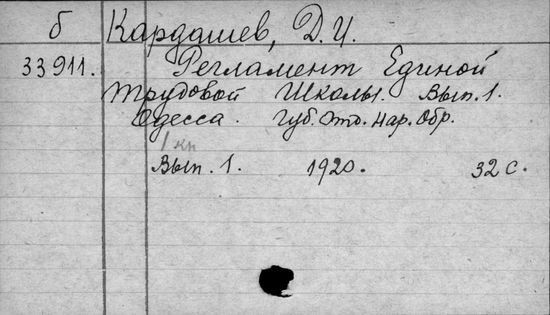 б Кардашев, Д. И.
33911. Регламент Единой
трудовой Школы. Вып. 1.
Одесса. Губ. Отд. Нар. Обр.
1 кн
Вып. 1. 1920. 32 с.